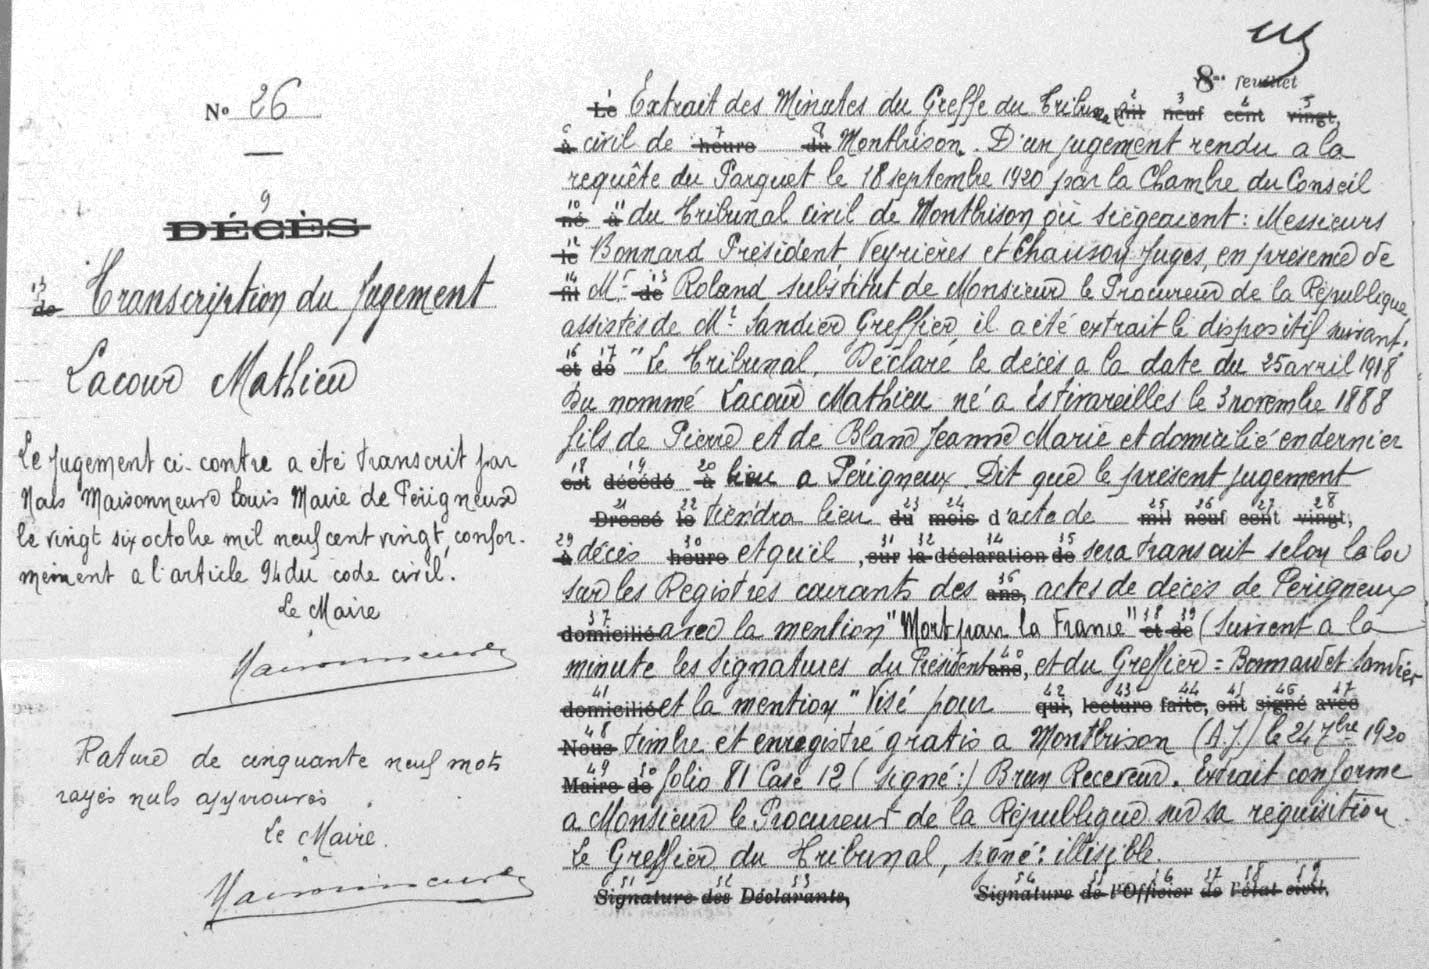 8me feuillet
No 26
9
DÉCÈS
13
de Transcription du Jugement
Lacour Mathieu
Le jugement ci-contre a été transcrit par
Nous Maisonneuve Louis Marie de Périgneux
le vingt six octobre mil neuf cent vingt, confor-
mément a l'article 94 du code civil.
Le Maire
Maisonneuve
Rature de cinquante neuf mots
rayés nuls approuvés
Le Maire.
Maisonneuve
Le Extrait des Minutes du Greffe du Tribunal mil neuf cent vingt,
à civil de heure du Montbrison. D'un jugement rendu a la
requête du Parquet le 18 septembre 1920 par la Chambre du Conseil
né à du Tribunal civil de Montbrison où siégeaient: Messieurs
le Bonnard Président Veyrières et Chausoy Juges, en présence de
fil Mr de Roland substitut de Monsieur le Procureur de la République
assistés de Mr Sandier Greffier il a été extrait le dispositif suivant.
et de "Le Tribunal, Déclare le décès a la date du 25 avril 1918
Du nommé Lacour Mathieu né a Estivareilles le 3 novembre 1888
fils de Pierre et de Blanc Jeanne Marie et domicilié en dernier
est décédé à lieu a Périgneux, Dit que le présent jugement
Dressé le tiendra lieu du mois d'acte de mil neuf cent vingt,
à décès heure et qu'il , sur la déclaration de sera transcrit selon la loi
sur les Registres courants des ans, actes de décès de Périgneux
domicilié avec la mention "Mort pour la France" et de (Suivent a la
minute les signatures du Président ans, et du Greffier = Bonnard et Sandier
domicilié et la mention "Visé pour qui, lecture faite, ont signé avec
Nous timbre et enregistré gratis a Montbrison (A.J) le 24 7bre 1920
Maire de folio 81 Case 12 (signé:) Brun Receveur. Extrait conforme
a Monsieur le Procureur de la République sur sa réquisition
Le Greffier du Tribunal, signé: illisible.
51 52 53 54 55 56 57 58 59
Signature des Déclarants, Signature de l'Officier de l'état civil,